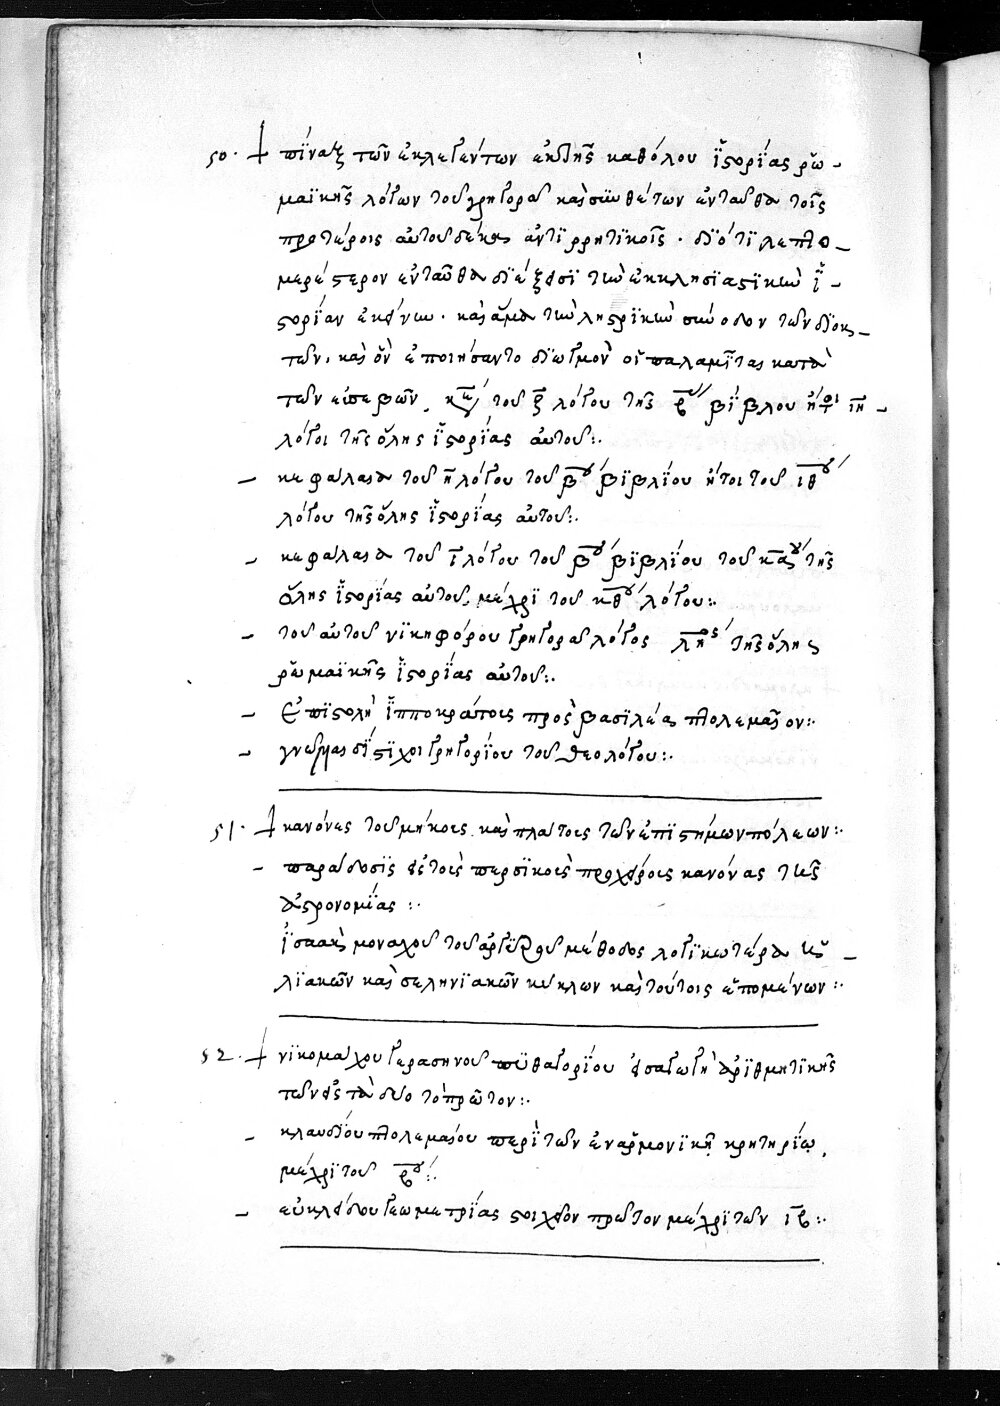 50. πίναξ τῶν ἐκλεγέντων ἐκ τῆς καθόλου ἱστορίας ῥω-
μαϊκῆς λόγων τοῦ γρηγορᾶ καὶ συνθέτων ἐνταῦθα τοῖς
προτέροις αὐτοῦ δέκα ἀντιρρητικοῖς . διότι λεπτο-
μερέστερον ἐνταῦθα διέξεισι τὴν ἐκκλησιαστικὴν ἱ-
στορίαν ἐκείνων . καὶ ἅμα τὴν ληστρικὴν σύνοδον τῶν διοκ-
τῶν. καὶ ὃν ἐποιήσαντο διωγμὸν οἱ παλαμῖται κατὰ
τῶν εὐσεβῶν. τοῦ ζ λόγου τῆς β βίβλου ἤτοι ιη-
λόγοι τῆς ὅλης ἱστορίας αὐτοῦ:.
- κεφάλαια τοῦ η λόγου τοῦ βου βιβλίου ἤτοι τοῦ ιθου
λόγου τῆς ὅλης ἱστορίας αὐτοῦ:.
- κεφάλαια τοῦ ι λόγου τοῦ βου βιβλίου τοῦ καου τῆς
ὅλης ἱστορίας αὐτοῦ, μέχρι τοῦ κθου λόγου:.
- τοῦ αὐτοῦ νικηφόρου γρηγορᾶ λόγος ληος τῆς ὅλης
ῥωμαϊκῆς ἱστορίας αὐτοῦ:.
- ἐπιστολὴ ἱπποκράτους πρὸς βασιλέα πτολεμαῖον:.
- στίχοι γρηγορίου τοῦ θεολόγου:.
51. κανόνες τοῦ μήκους καὶ πλάτους τῶν ἐπισήμων πόλεων:.
- παράδοσις εἰς τοὺς περσικοὺς προχείρους κανόνας τῆς
ἀστρονομίας:.
ἰσαὰκ μοναχοῦ τοῦ ἀργυροῦ μέθοδος λογικωτέρα ἡ-
λιακῶν καὶ σεληνιακῶν κύκλων καὶ τούτοις ἑπομένων:.
52. νικομάχου γερασηνοῦ πυθαγορίου εἰσαγωγὴ ἀριθμητικῆς
τῶν εἰς τὰ δύο τὸ πρῶτον:.
- κλαυδίου πτολεμαίου περὶ τῶν ἐναρμονικῇ κρητηρίῳ,
μέχρι τοῦ βου:.
- εὐκλείδου γεωμετρίας στοιχεῖον πρῶτον μέχρι τῶν ιβ:.